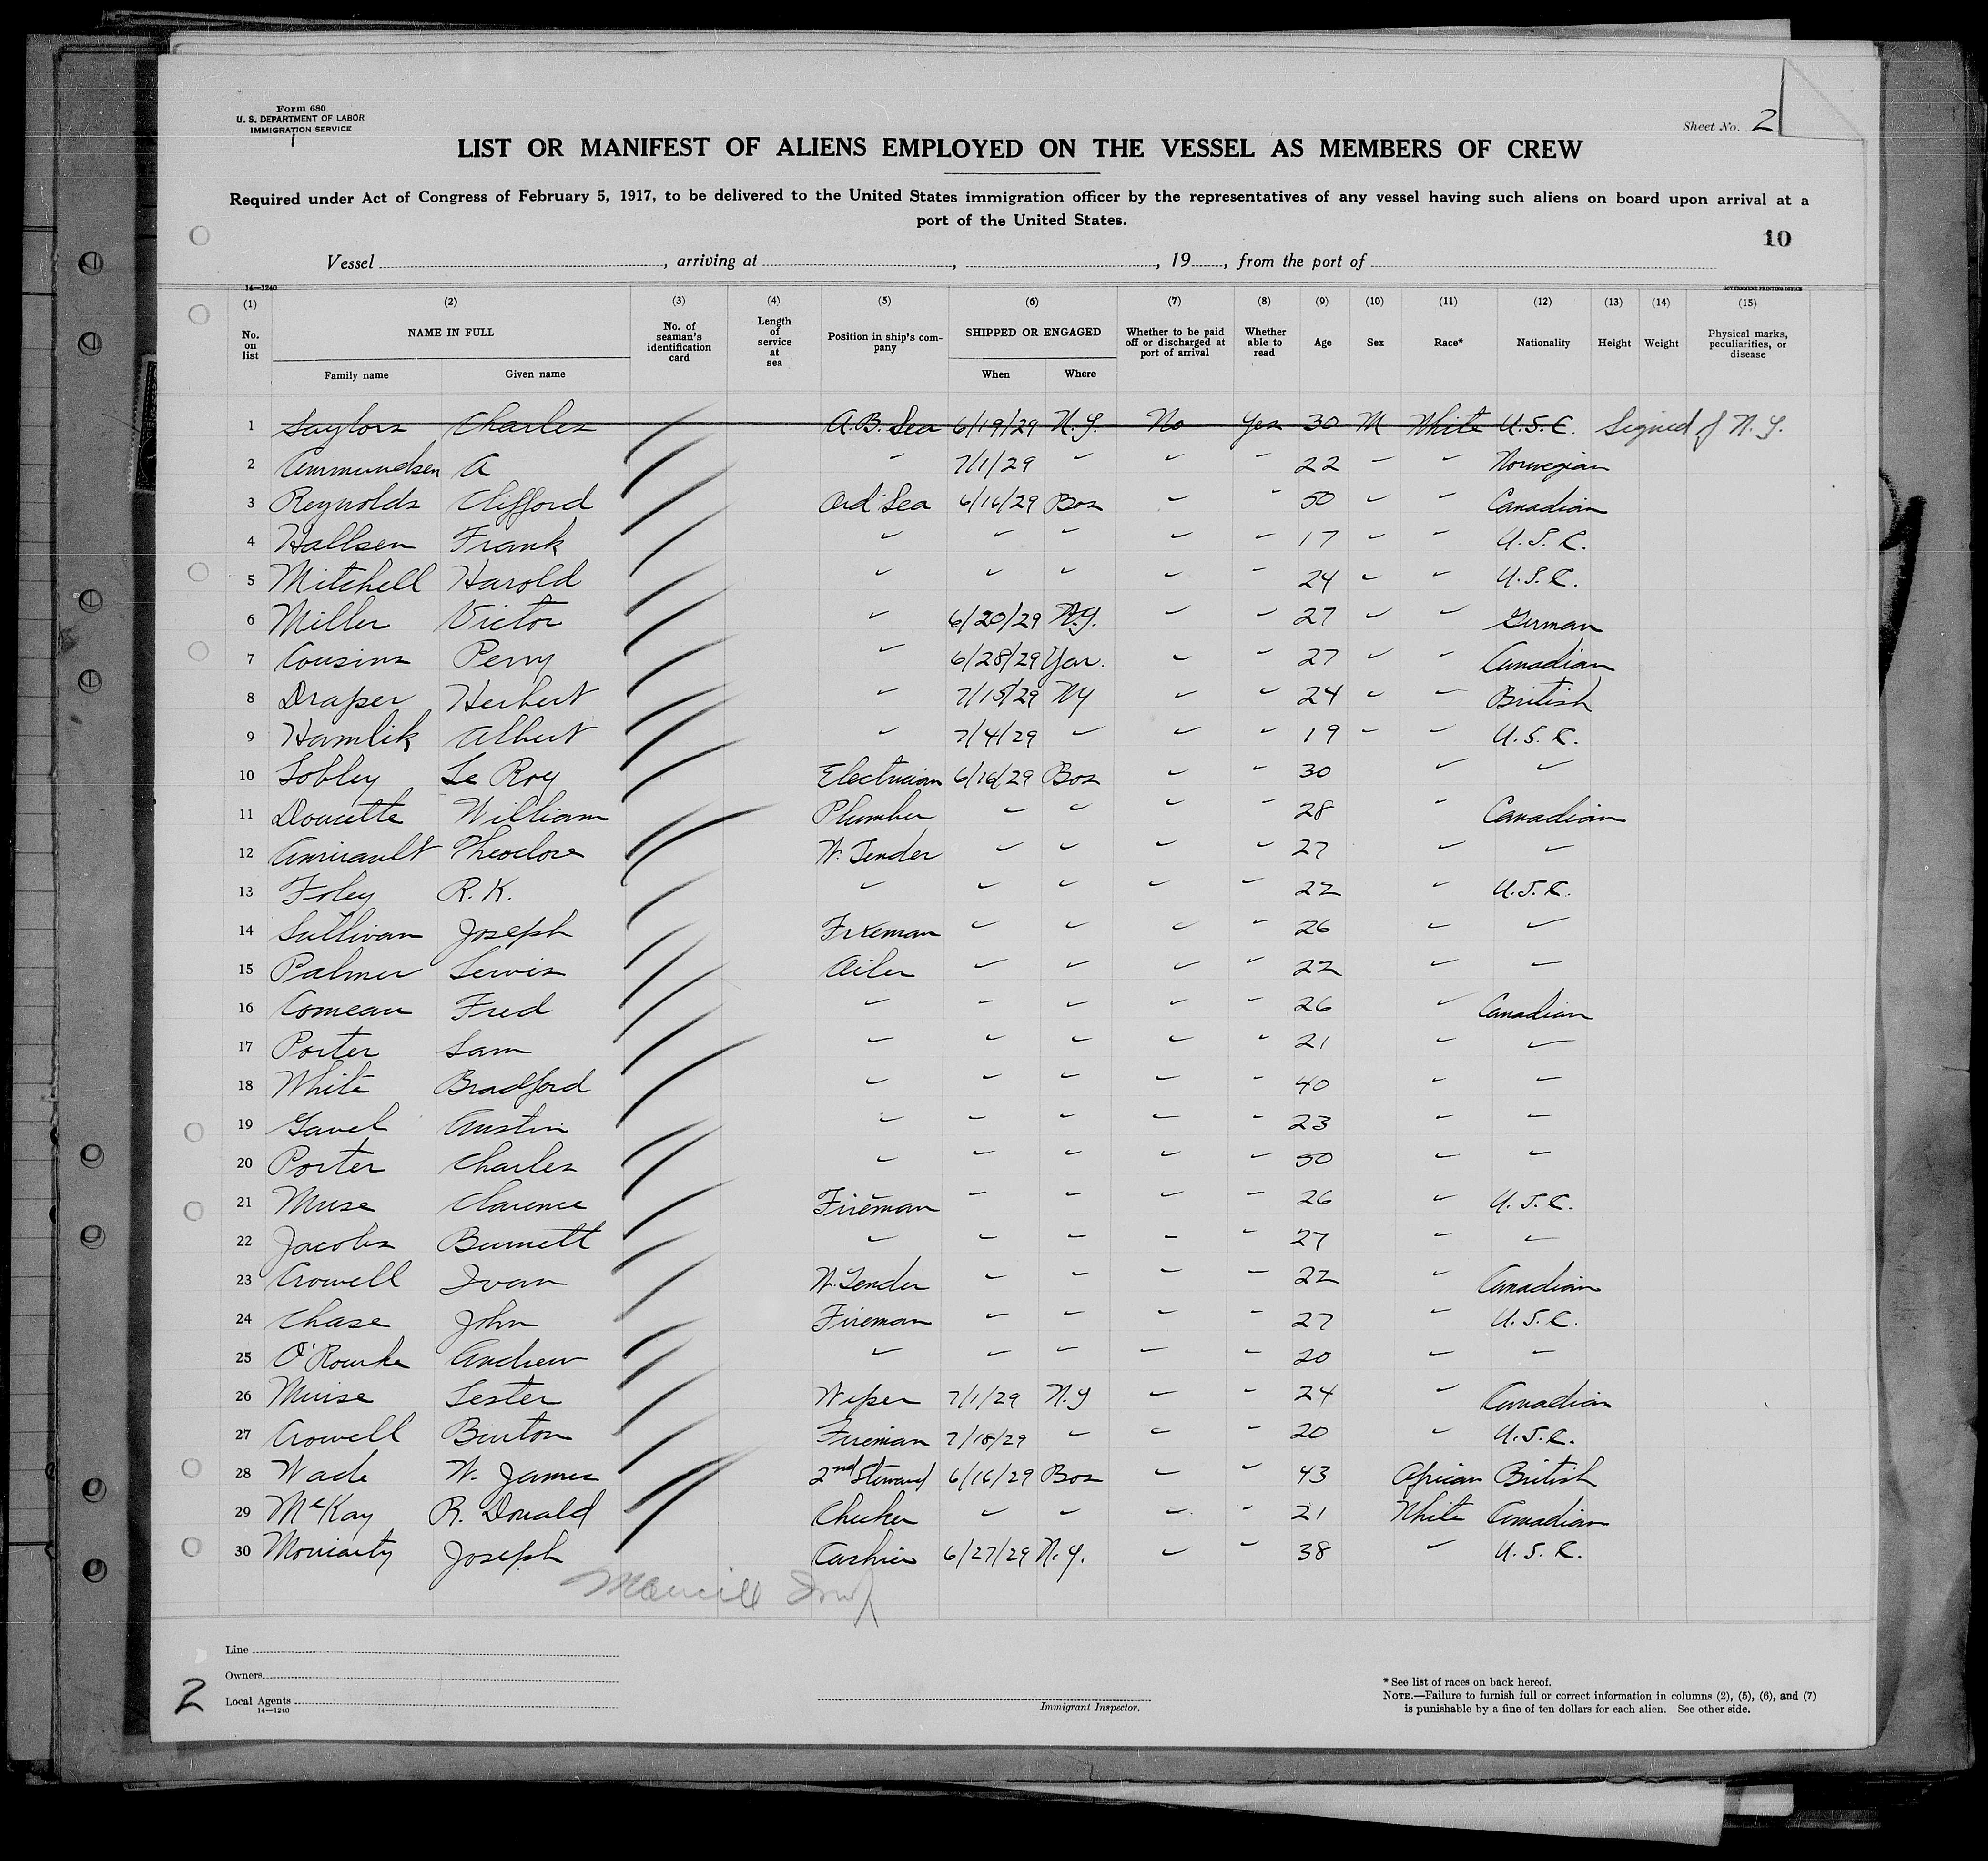 Form 680
U. S. DEPARTMENT OF LABOR
IMMIGRATION SERVICE
Sheet No. 2
LIST OR MANIFEST OF ALIENS EMPLOYED ON THE VESSEL AS MEMBERS OF CREW
Required under Act of Congress of February 5, 1917, to be delivered to the United States immigration officer by the representatives of any vessel having such aliens on board upon arrival at a
port of the United States.
10
Vessel , arriving at , , 19 , from the port of
14—1240 GOVERNMENT PRINTING OFFICE
(1) (2) (3) (4) (5) (6) (7) (8) (9) (10) (11) (12) (13) (14) (15)
No. on list NAME IN FULL Family name Given name No. of seaman's identification card Length of service at sea Position in ship's company SHIPPED OR ENGAGED When Where Whether to be paid off or discharged at port of arrival Whether able to read Age Sex Race* Nationality Height Weight Physical marks, peculiarities, or disease
1 Saylors Charles A.B. Sea 6/19/29 N.Y. No Yes 30 M White U.S.C. Signed N.Y.
2 Ammundsen A " 7/1/29 " " " 22 " " Norwegian
3 Reynolds Clifford Ord Sea 6/16/29 Bos " " 50 " " Canadian
4 Hallsen Frank " " " " " 17 " " U.S.C.
5 Mitchell Harold " " " " " 24 " " U.S.C.
6 Miller Victor " 6/20/29 N.Y. " " 27 " " German
7 Cousins Perry " 6/28/29 Yar. " " 27 " " Canadian
8 Draper Herbert " 7/15/29 NY " " 24 " " British
9 Hamlik Albert " 7/4/29 " " " 19 " " U.S.C.
10 Sobley Le Roy Electrician 6/16/29 Bos " " 30 " "
11 Doucette William Plumber " " " " 28 " Canadian
12 Amirault Theodore W. Tender " " " " 27 " "
13 Foley R.K. " " " " " 22 " U.S.C.
14 Sullivan Joseph Fireman " " " " 26 " "
15 Palmer Lewis Oiler " " " " 22 " "
16 Comeau Fred " " " " " 26 " Canadian
17 Porter Sam " " " " " 21 " "
18 White Bradford " " " " " 40 " "
19 Gavel Austin " " " " " 23 " "
20 Porter Charles " " " " " 50 " "
21 Muse Clarence Fireman " " " " 26 " U.S.C.
22 Jacobs Burnett " " " " " 27 " "
23 Crowell Ivan W. Tender " " " " 22 " Canadian
24 Chase John Fireman " " " " 27 " U.S.C.
25 O'Rourke Andrew " " " " " 20 " "
26 Muise Lester Wiper 7/1/29 N.Y " " 24 " Canadian
27 Crowell Burton Fireman 7/18/29 " " " 20 " U.S.C.
28 Wade W. James 2nd Steward 6/16/29 Bos " " 43 African British
29 McKay R. Donald Checker " " " " 21 White Canadian
30 Moriarity Joseph Cashier 6/27/29 N.Y. " " 38 " U.S.C.
Line
Owners
Local Agents
14—1240
2
Immigrant Inspector.
* See list of races on back hereof.
NOTE.—Failure to furnish full or correct information in columns (2), (5), (6), and (7)
is punishable by a fine of ten dollars for each alien. See other side.